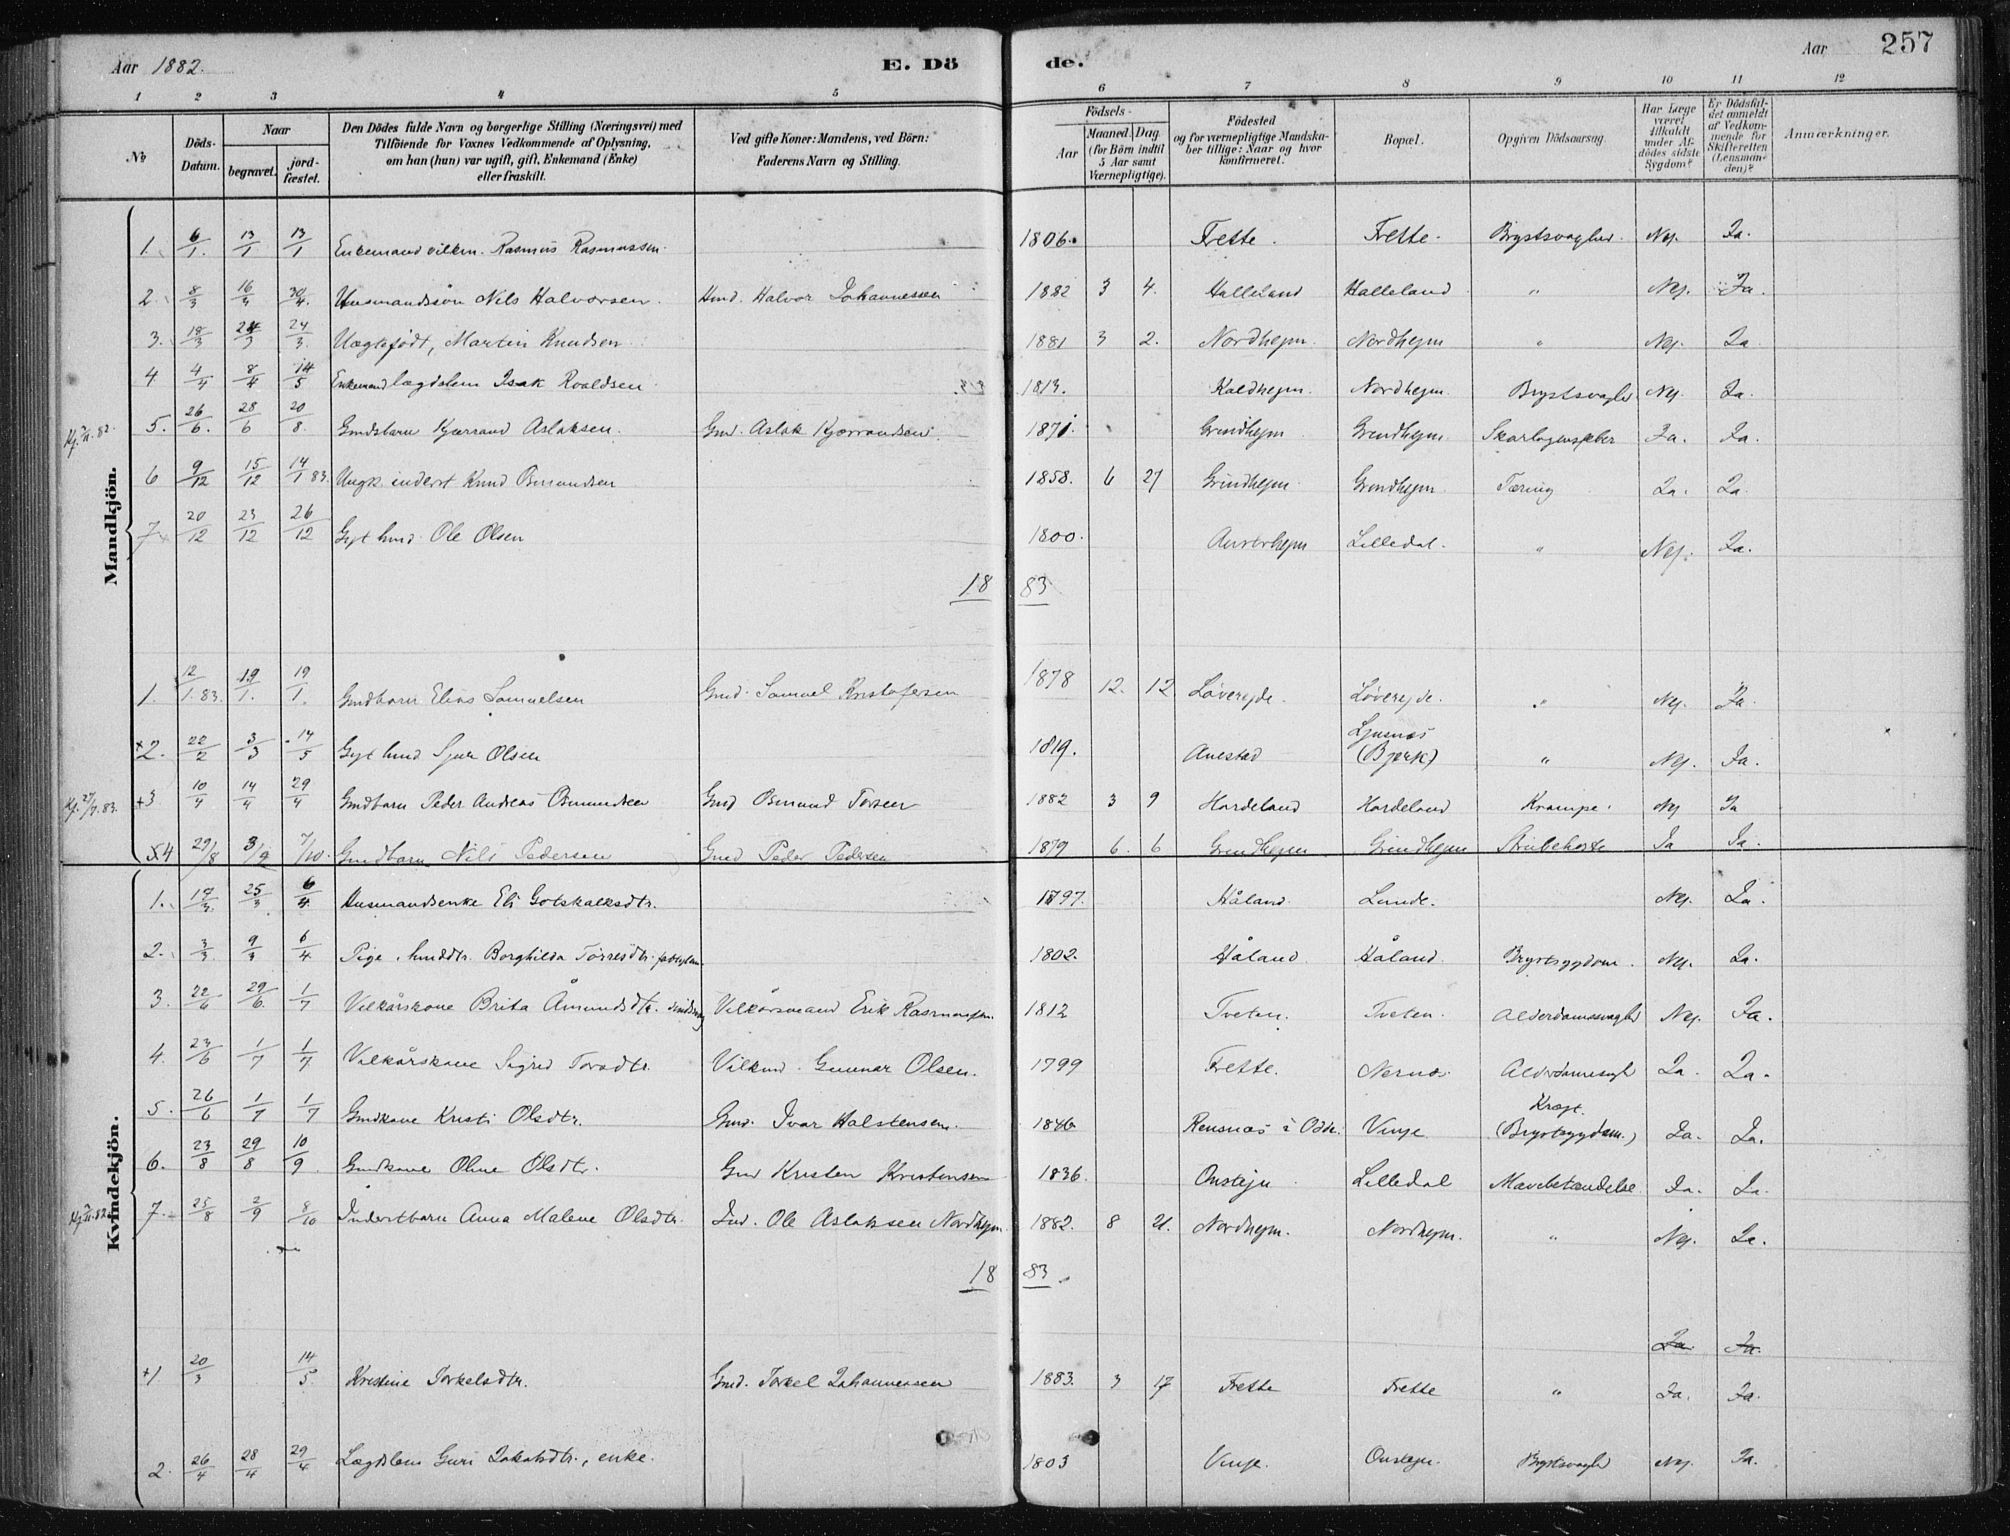 Aar 1882.
E. Dö
de.
Aar
257
1 2 3 4 5 6 7 8 9 10 11 12
No
Döds-Datum.
Naar
begravet.
jord-fæstet.
Den Dödes fulde Navn og borgerlige Stilling (Næringsvei) med
Tilföiende for Voxnes Vedkommende af Oplysning,
om han (hun) var ugift, gift, Enkemand (Enke)
eller fraskilt.
Ved gifte Koner: Mandens, ved Börn:
Faderens Navn og Stilling.
Födsels-
Aar
Maaned. Dag.
(for Börn indtil
5 Aar samt
Værnepligtige).
Födested
og for værnepligtige Mandska-
ber tillige: Naar og hvor
konfirmeret.
Bopæl.
Opgiven Dödsaarsag.
Har Læge
været
tilkaldt
under Af-
dödes sidste
Sygdom?
Er Dödsfal-
det anmeldt
af Vedkom-
mende for
Skifteretten
(Lensman-
den)?
Anmærkninger.
Mandkjön.
1. 6/1. 13/1 13/1 Enkemand vilkm. Rasmus Rasmussen. 1806. Frette. Frette. Brystsvaghed. Nej. Ja.
2. 8/3 16/3 30/4. Husmandssön Nils Halvorsen. Hmd. Halvor Johannessen 1882 3 4. Halleland Halleland " Nej. Ja.
3. 18/3 24/3 24/3. Uægtefödt, Martin Knudsen 1881 3 2. Nordhejm. Nordhejm " Nej. Ja
4 4/4 8/4 14/5 Enkemand lægdslem Isak Roaldsen 1813. Kaldhejm. Nordhejm. Brystsvaghed Nej. Ja.
5. 26/6. 28/6 20/8. Gmdsbarn Kjærrand Aslaksen. Gmd. Aslak Kjærrandsen. 1871. Grindhejm Grindhejm Skarlagensfeber Ja. Ja.
6 9/12 15/12 14/1 83. Ungk. inderst Knud Osmundsen 1858. 6 27 Grindhejm. Grindhejm. Tæring Ja. Ja
7. 20/12 23/12 26/12 Gift hmd. Ole Olsen 1800. Austerhejm Lilledal. " Nej. Ja.
18 83
1. 12/1. 83. 19/1. 19/1. Gmdbarn Elias Samuelsen Gmd. Samuel Kristofersen 1878 12. 12 Løverejde. Løverejde. " Nej. Ja.
+2. 22/2 3/3 14/5 Gift hmd Sjur Olsen 1819. Anestad Ljusnæs (Bjørk) " Nej. Ja.
+3 10/4 14/4 29/4 Gmdbarn Peder Andreas Osmundsen Gmd Osmund Torsen 1882 3 9 Hardeland Hardeland Krampe. Nej Ja
+4 29/8 3/9 7/10. Gmdbarn Nils Pedersen Gmd Peder Pedersen 1879 6. 6 Grindhejm Grindhejm Strubehoste Ja Ja.
Kvindekjön.
1. 17/3. 25/3 6/4. Husmandsenke Eli Gotskalksdtr. 1797. Håland. Lunde. Nej. Ja.
2. 3/3. 9/3 6/4 Pige. husdtr. Borghilda Tórresdtr. 1802. Håland Håland. Brystsygdom. Nej. Ja.
3. 22/6 29/6. 1/7 Vilkårskone Brita Åmundsdtr. Vilkårsmand Erik Rasmussen. 1812 Tveten. Tveten. Alderdomssvaghed Nej. Ja.
4. 23/6 1/7 1/7. Vilkårskone Sigrid Torsdtr. Vilkmd. Gunnar Olsen. 1799 Frette. Nernæs Ja. Ja.
5. 26/6 1/7 1/7 Gmdkone Kristi Olsdtr. Gmd. Ivar Halstensen. 1846 Rensnæs i Odde. Vinje Kræft. (Brystsygdom.) Ja. Ja.
6. 23/8 29/8 10/9 Gmdkone Oline Olsdtr. Gmd Kristen Kristensen 1836. Onstejn Lilledal Mavebetændelse. Ja. Ja.
7. 25/8 2/9 8/10 Inderstbarn Anna Malene Olsdtr. Ind. Ole Aslaksen Nordhejm. 1882. 8 21. Nordhejm. Nordhejm. " Nej. Ja.
18 83
Ja. Ja.
+1 20/3 14/5. Kristine Torkelsdtr. Gmd. Torkel Johannessen 1883. 3 17 Frette Frette " Ja. Ja.
2. 26/4 28/4 29/4 Lægdslem Guri Jakobsdtr., enke. 1803 Vinje. Onstejn. Brystsvaghed Nej. Ja.